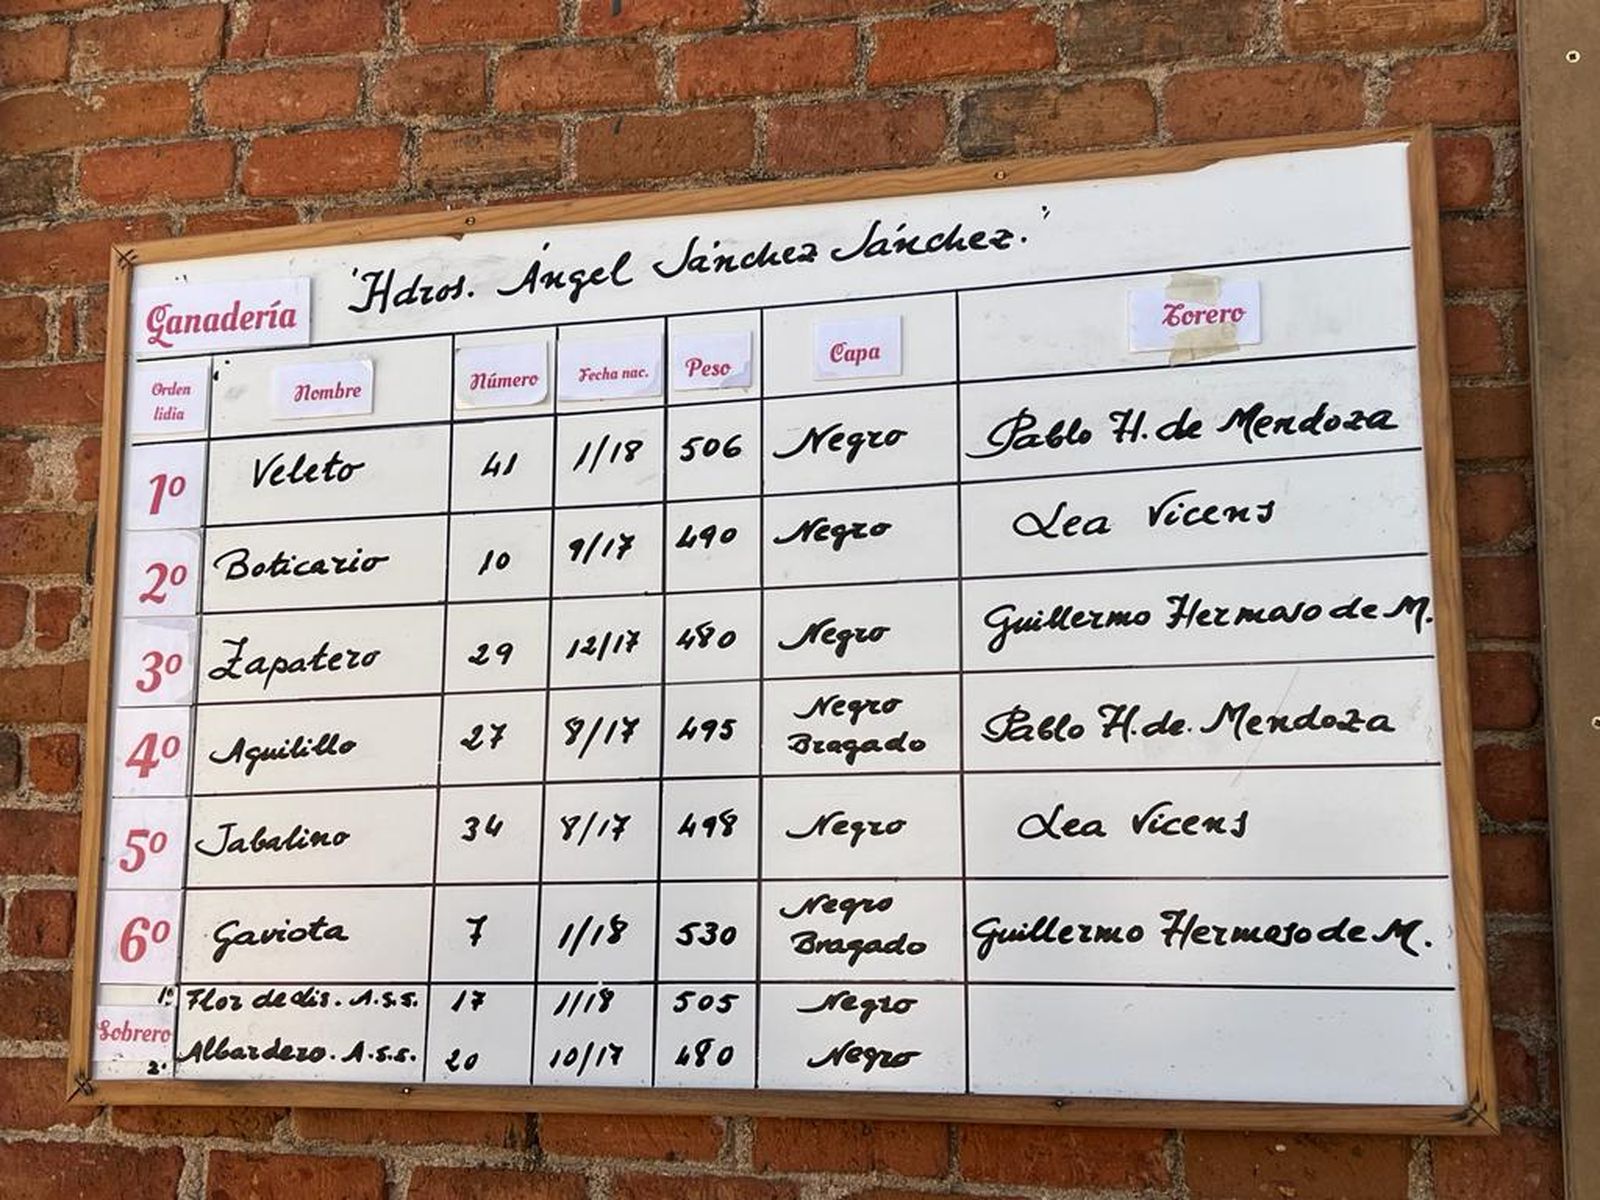 'Hdros. Ángel Sánchez Sánchez.'
Ganadería
Orden lidia Nombre Número Fecha nac. Peso Capa Torero
1º Veleto 41 1/18 506 Negro Pablo H. de Mendoza
2º Boticario 10 9/17 490 Negro Lea Vicens
3º Zapatero 29 12/17 480 Negro Guillermo Hermoso de M.
4º Aguilillo 27 8/17 495 Negro Bragado Pablo H. de. Mendoza
5º Jabalino 34 8/17 498 Negro Lea Vicens
6º Gaviota 7 1/18 530 Negro Bragado Guillermo Hermoso de M.
Sobrero
1º Flor de lis. A.S.S. 17 1/18 505 Negro
2º Albardero. A.S.S. 20 10/17 480 Negro